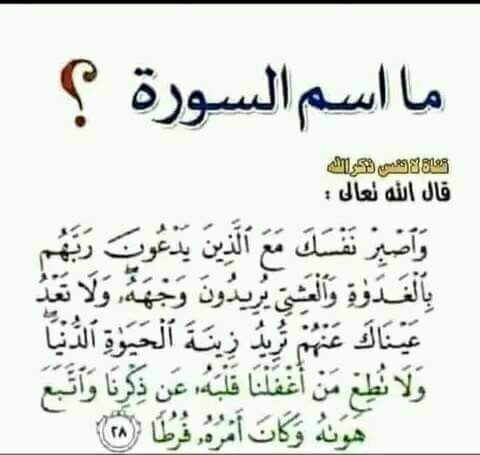 ما اسم السورة ؟
قناة لا تنس ذكر الله
قال الله تعالى :
وَٱصْبِرْ نَفْسَكَ مَعَ ٱلَّذِينَ يَدْعُونَ رَبَّهُم
بِٱلْغَدَوٰةِ وَٱلْعَشِىِّ يُرِيدُونَ وَجْهَهُۥۖ وَلَا تَعْدُ
عَيْنَاكَ عَنْهُمْ تُرِيدُ زِينَةَ ٱلْحَيَوٰةِ ٱلدُّنْيَاۖ
وَلَا نُطِعْ مَنْ أَغْفَلْنَا قَلْبَهُۥ عَن ذِكْرِنَا وَٱتَّبَعَ
هَوَىٰهُ وَكَانَ أَمْرُهُۥ فُرُطًا ٢٨